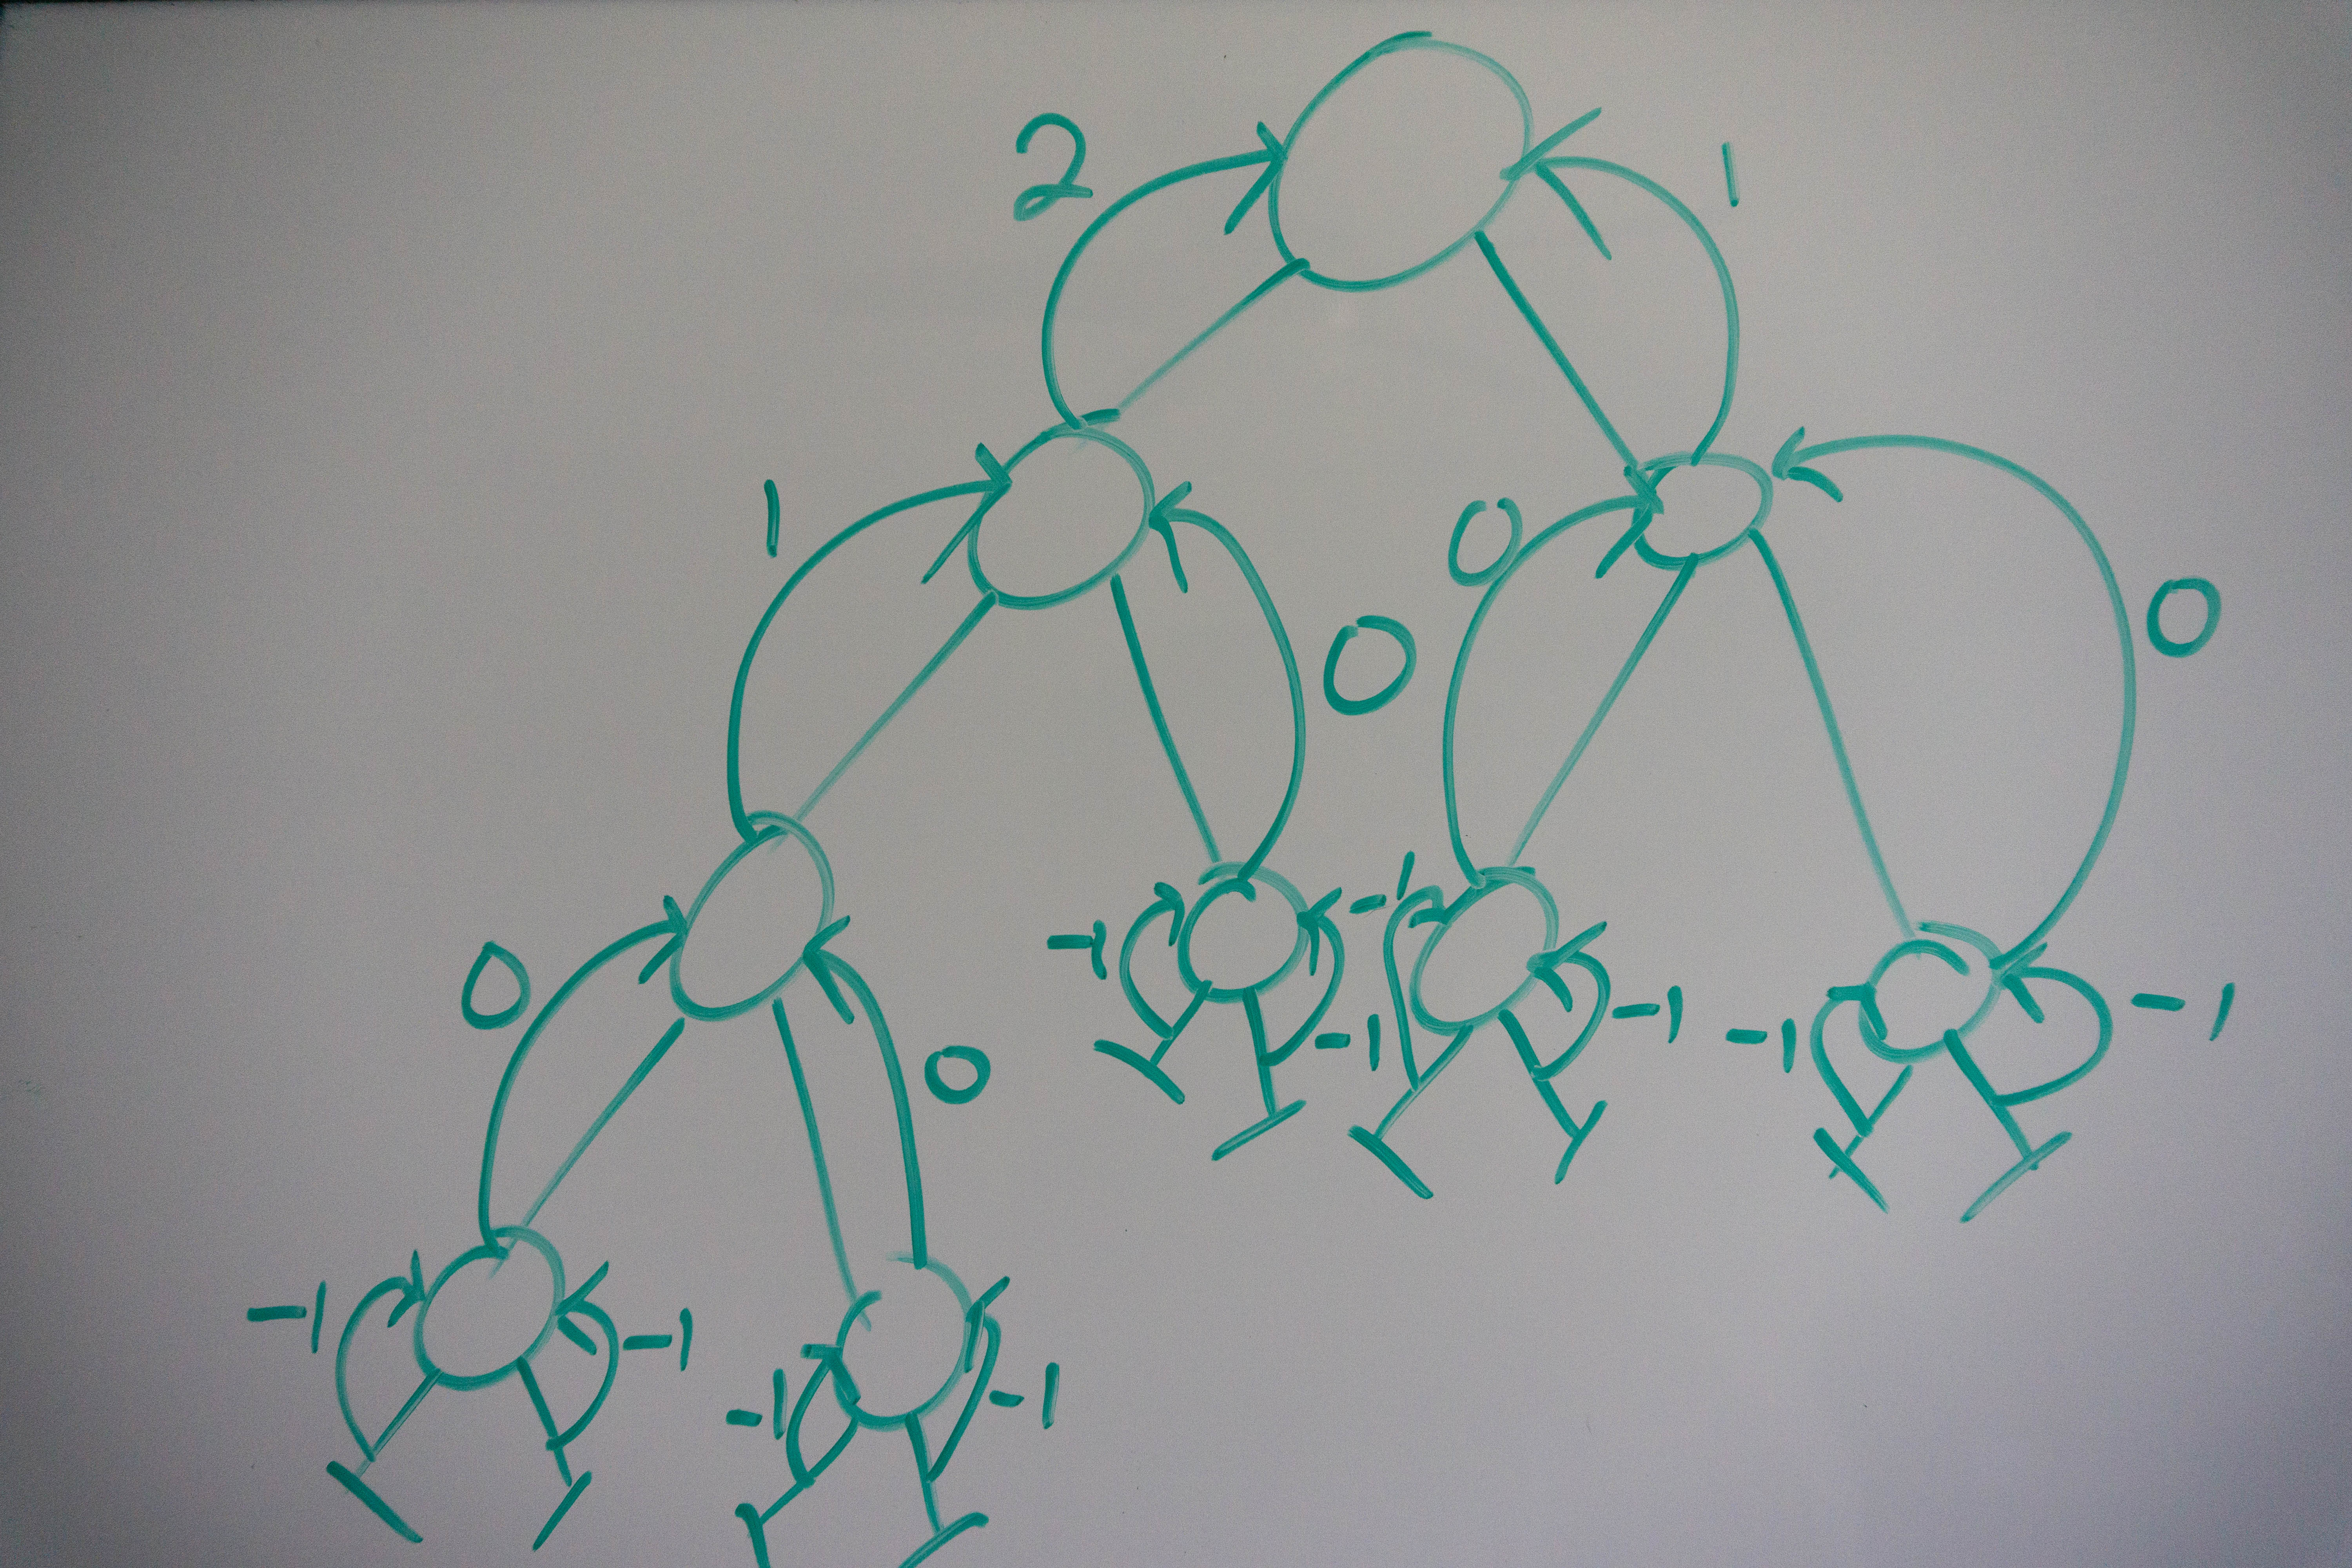 2 1
1 0 0 0
0 0 -1 -1 -1 -1 -1 -1
-1 -1 -1 -1